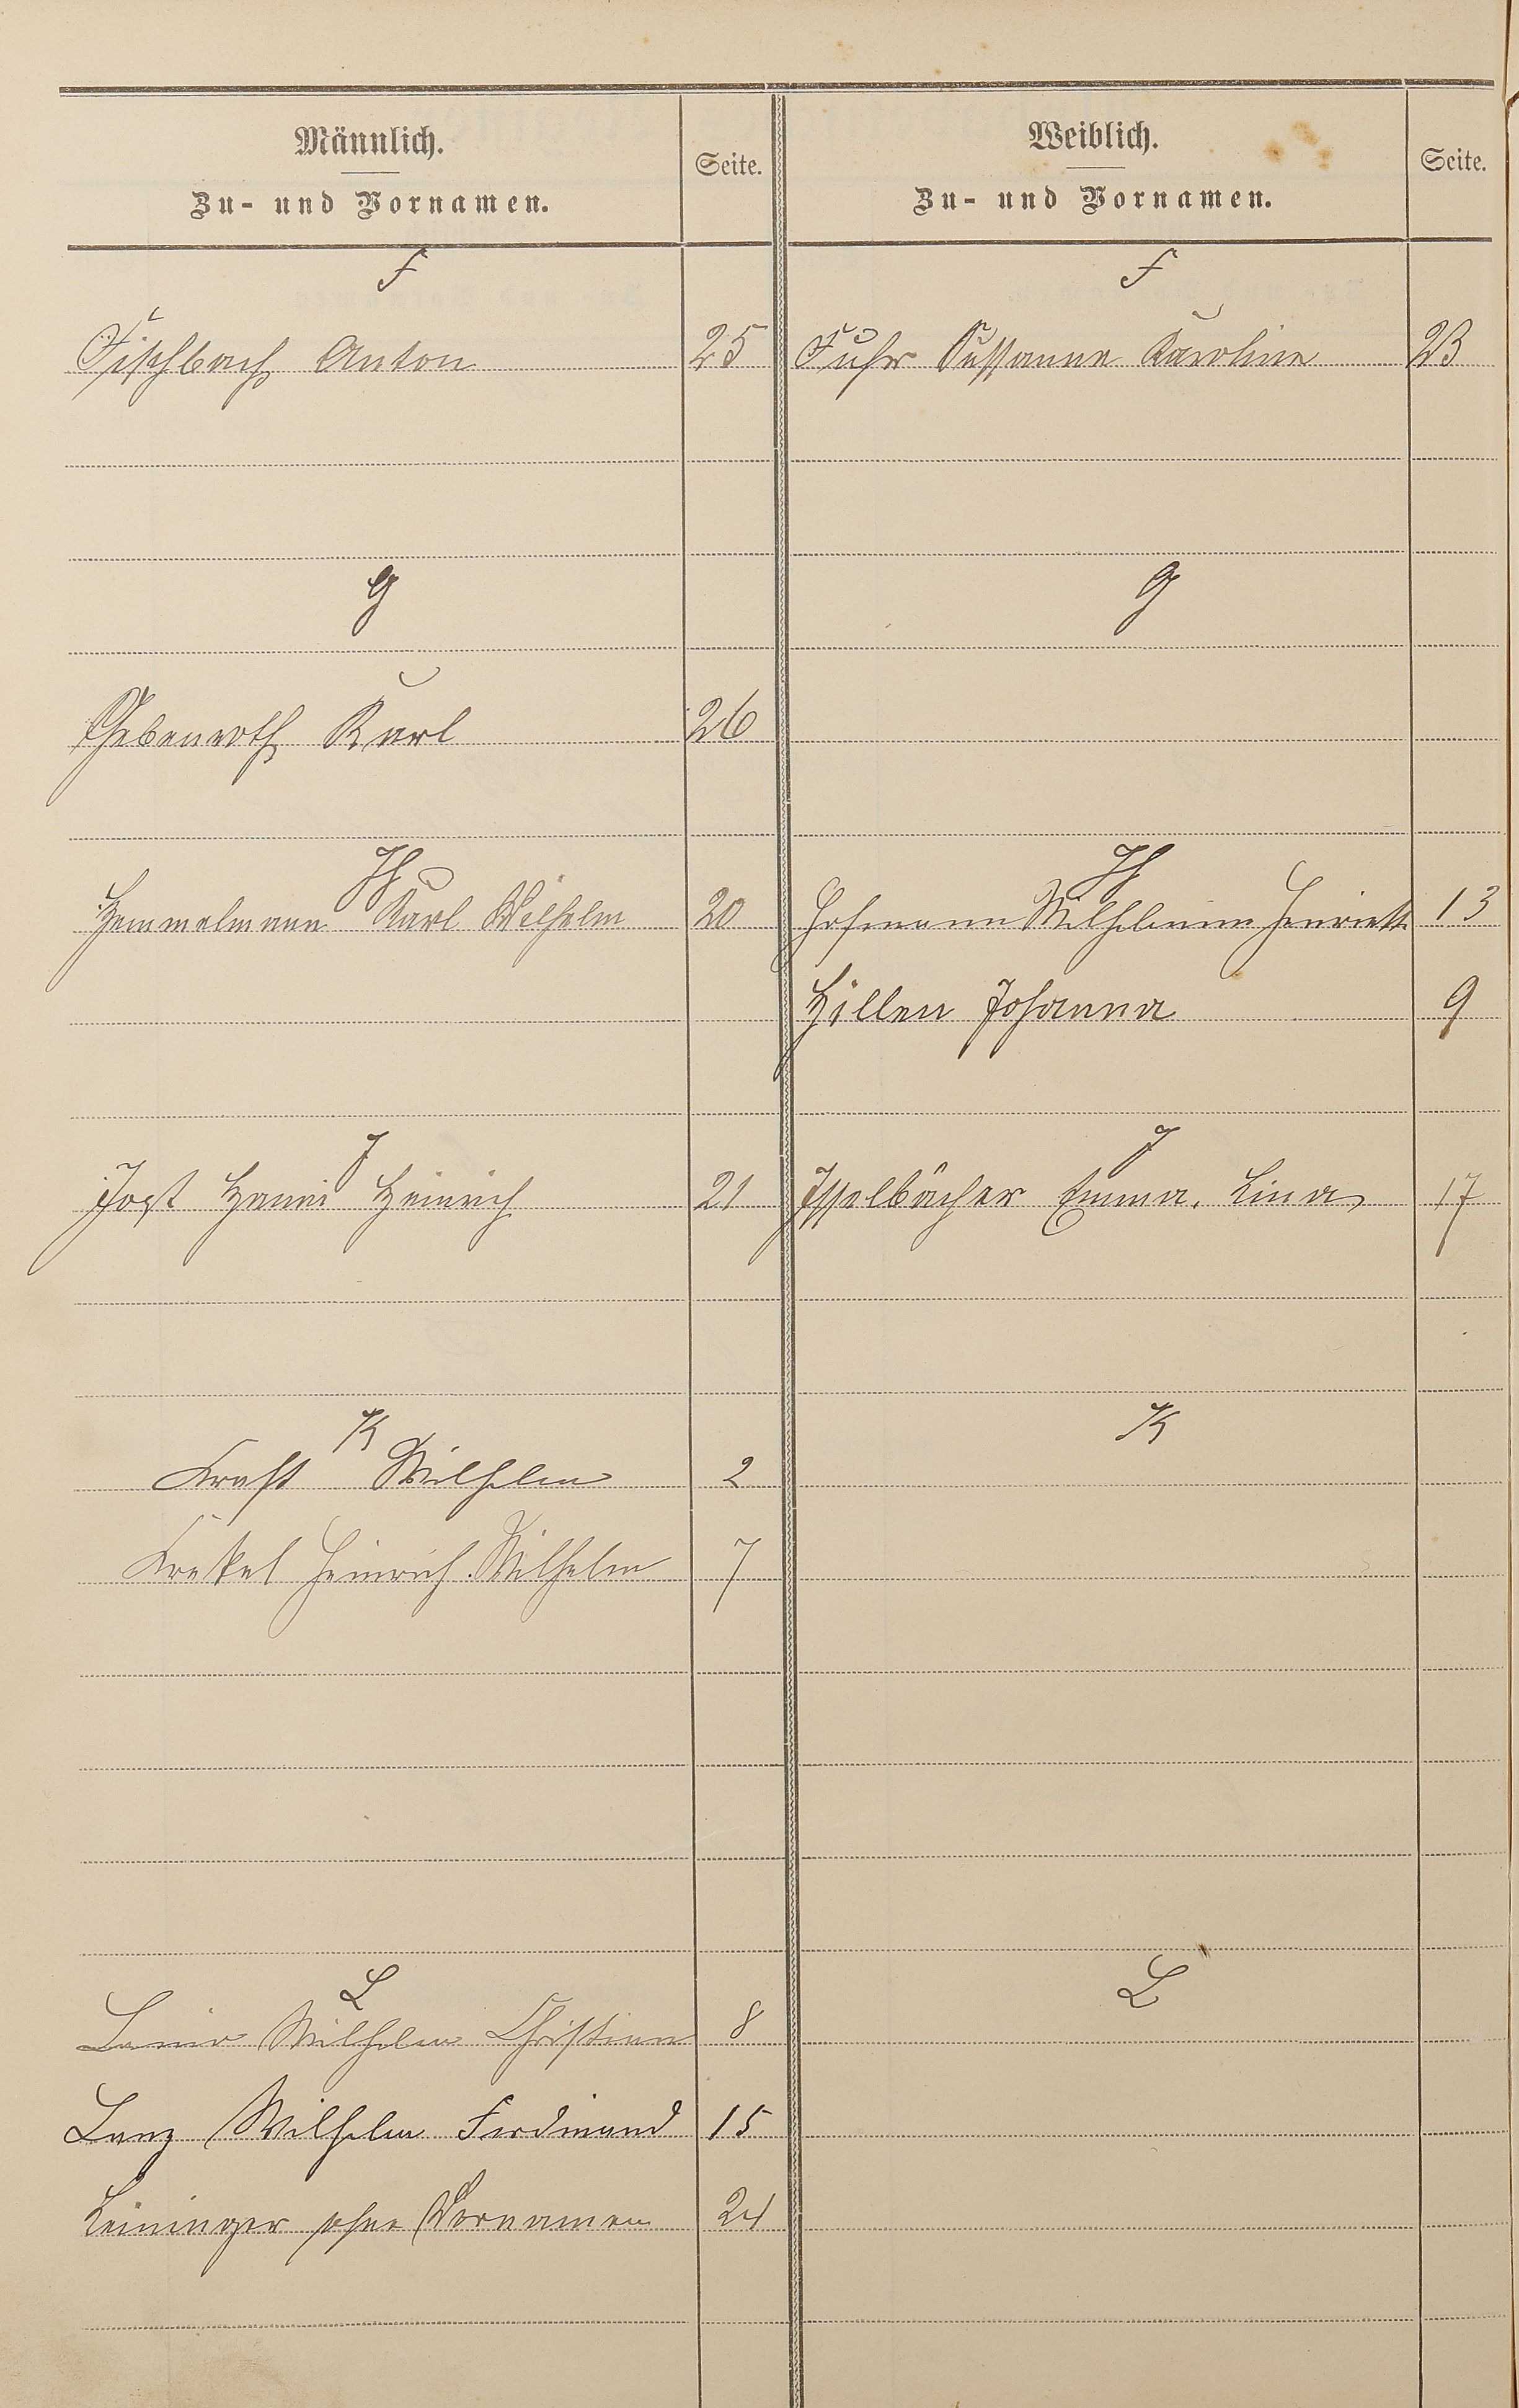 Männlich.
Zu- und Vornamen.
Seite.
Weiblich.
Zu- und Vornamen.
Seite.
F
F
Fischbach Anton 25
Fuhr Sussanna Karoline 23
G
G
Gebenroth Karl 26
H
H
Hemmelmann Karl Wilhelm 20
Hofmann Wilhelmine Henriette 13
Hillen Johanna 9
J
J
Jost Heinrich 21
Isselbächer Emma, Lina 17
K
K
Kraft Wilhelm 2
Krekel Heinrich Wilhelm 7
L
L
Wilhelm Christian 8
Lanz Wilhelm Ferdinand 15
Leininger ohne Vornamen 24